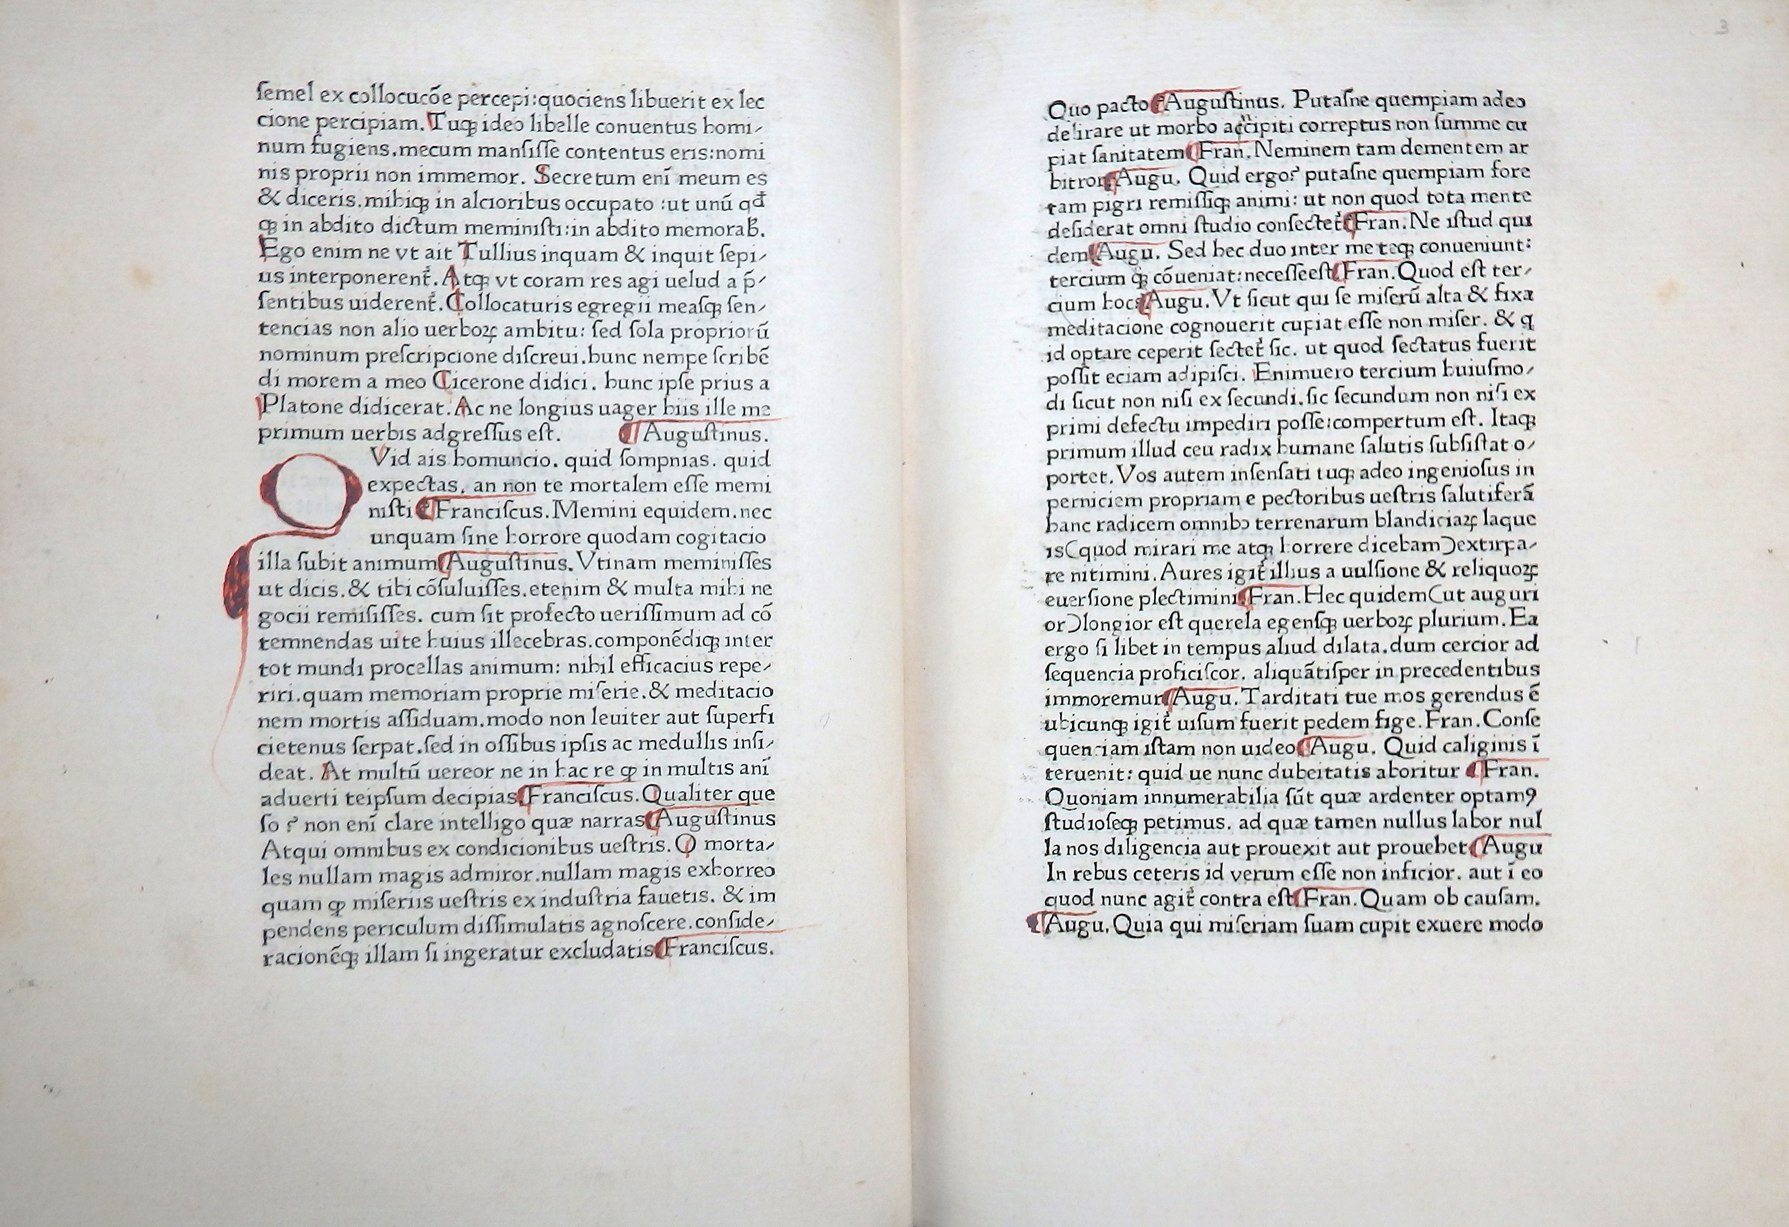 ſemel ex collocucōe percepi:quociens libuerit ex lec
cione percipiam. Tuqꝫ ideo libelle conuentus homi⸗
num fugiens.mecum manſiſſe contentus eris:nomi
nis proprii non immemor. Secretum enī meum es
& diceris.mihiqꝫ in alcioribus occupato :ut unū qđ
qꝫ in abdito dictum meminiſti:in abdito memorab̄.
Ego enim ne vt ait Tullius inquam & inquit ſepi⸗
us interponerent᷑. Atqꝫ vt coram res agi uelud a p̄⸗
ſentibus uiderent᷑. Collocaturis egregii meaſqꝫ ſen⸗
tencias non alio uerboꝝ ambitu: ſed ſola propriorū
nominum preſcripcione diſcreui.hunc nempe ſcribē
di morem a meo Cicerone didici. hunc ipſe prius a
Platone didicerat. Ac ne longius uager hiis ille me
primum uerbis adgreſſus eſt. ¶ Auguſtinus.
QVid ais homuncio. quid ſompnias. quid
expectas. an non te mortalem eſſe memi
niſti ¶ Franciſcus. Memini equidem.nec
unquam ſine horrore quodam cogitacio
illa ſubit animum ¶ Auguſtinus. Vtinam meminiſſes
ut dicis.& tibi cōſuluiſſes.etenim & multa mihi ne
gocii remiſiſſes. cum ſit profecto ueriſſimum ad cō
temnendas uite huius illecebras.componēdiqꝫ inter
tot mundi procellas animum: nihil efficacius repe⸗
riri.quam memoriam proprie miſerie.& meditacio
nem mortis aſſiduam.modo non leuiter aut ſuperfi
cietenus ſerpat.ſed in oſſibus ipſis ac medullis inſi⸗
deat. At multū uereor ne in hac re ꝙ in multis anī
aduerti teipſum decipias ¶ Franciſcus. Qualiter que
ſo ? non enī clare intelligo quæ narras ¶ Auguſtinus
Atqui omnibus ex condicionibus ueſtris. O morta⸗
les nullam magis admiror.nullam magis exhorreo
quam ꝙ miſeriis ueſtris ex induſtria fauetis. & im
pendens periculum diſſimulatis agnoſcere.conſide⸗
racionēqꝫ illam ſi ingeratur excludatis ¶ Franciſcus.
3
Quo pacto ¶ Auguſtinus. Putaſne quempiam adeo
delirare ut morbo accipiti correptus non ſumme cu
piat ſanitatem ¶ Fran. Neminem tam dementem ar
bitror ¶ Augu. Quid ergo? putaſne quempiam fore
tam pigri remiſſiqꝫ animi: ut non quod tota mente
deſiderat omni ſtudio conſectet᷑ ¶ Fran. Ne iſtud qui
dem ¶ Augu. Sed hec duo inter me teqꝫ conueniunt:
tercium qꝫ cōueniat:neceſſeeſt ¶ Fran. Quod eſt ter⸗
cium hoc ¶ Augu. Vt ſicut qui ſe miſerū alta & fixa
meditacione cognouerit cupiat eſſe non miſer. & q
id optare ceperit ſectet᷑ ſic. ut quod ſectatus fuerit
poſſit eciam adipiſci. Enimuero tercium huiuſmo⸗
di ſicut non niſi ex ſecundi.ſic ſecundum non niſi ex
primi defectu impediri poſſe:compertum eſt. Itaqꝫ
primum illud ceu radix humane ſalutis ſubſiſtat o⸗
portet. Vos autem inſenſati tuqꝫ adeo ingenioſus in
perniciem propriam e pectoribus ueſtris ſalutiferā
hanc radicem omnibꝫ terrenarum blandiciaꝝ laque
is(quod mirari me atqꝫ horrere dicebam)extirpa⸗
re nitimini. Aures igit᷑ illius a uulſione & reliquoꝝ
euerſione plectimini ¶ Fran. Hec quidem(ut auguri
or)longior eſt querela egenſqꝫ uerboꝝ plurium. Ea
ergo ſi libet in tempus aliud dilata.dum cercior ad
ſequencia proficiſcor. aliquātiſper in precedentibus
immoremur ¶ Augu. Tarditati tue mos gerendus ē
ubicunqꝫ igit᷑ uiſum fuerit pedem fige. Fran. Conſe
quenciam iſtam non uideo ¶ Augu. Quid caliginis ī
teruenit: quid ue nunc dubeitatis aboritur ¶ Fran.
Quoniam innumerabilia ſūt quæ ardenter optamꝰ
ſtudioſeqꝫ petimus. ad quæ tamen nullus labor nul
la nos diligencia aut prouexit aut prouehet ¶ Augu
In rebus ceteris id verum eſſe non inficior. aut ī eo
quod nunc agit᷑ contra eſt ¶ Fran. Quam ob cauſam.
¶ Augu. Quia qui miſeriam ſuam cupit exuere modo